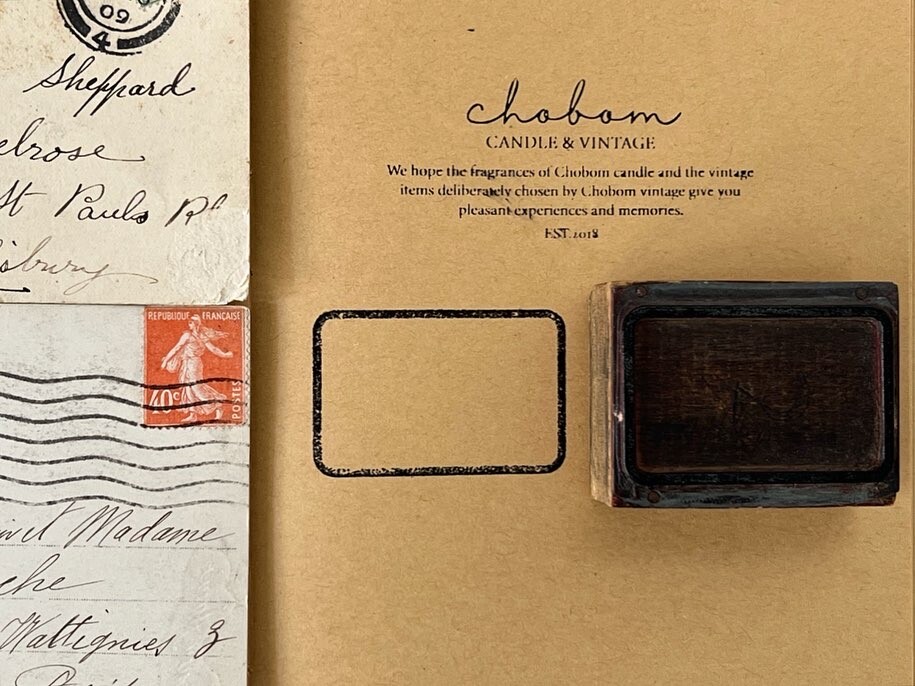 09
4
Sheppard
elrose
St Pauls Rd
isbury
REPUBLIQUE FRANÇAISE
40c
POSTES
et Madame
che
Wattignies
chobom
CANDLE & VINTAGE
We hope the fragrances of Chobom candle and the vintage
items deliberately chosen by Chobom vintage give you
pleasant experiences and memories.
EST.2018